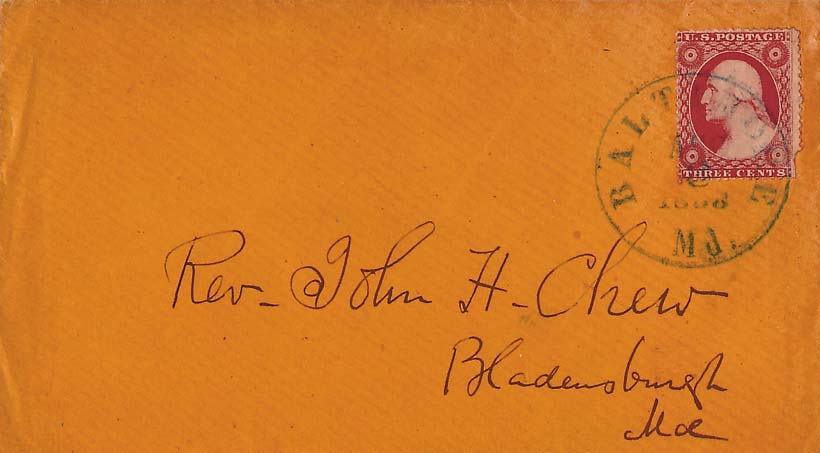 U.S. POSTAGE
THREE CENTS
BALTIMORE
Md.
Rev- John H- Chew
Bladensburgh
Md